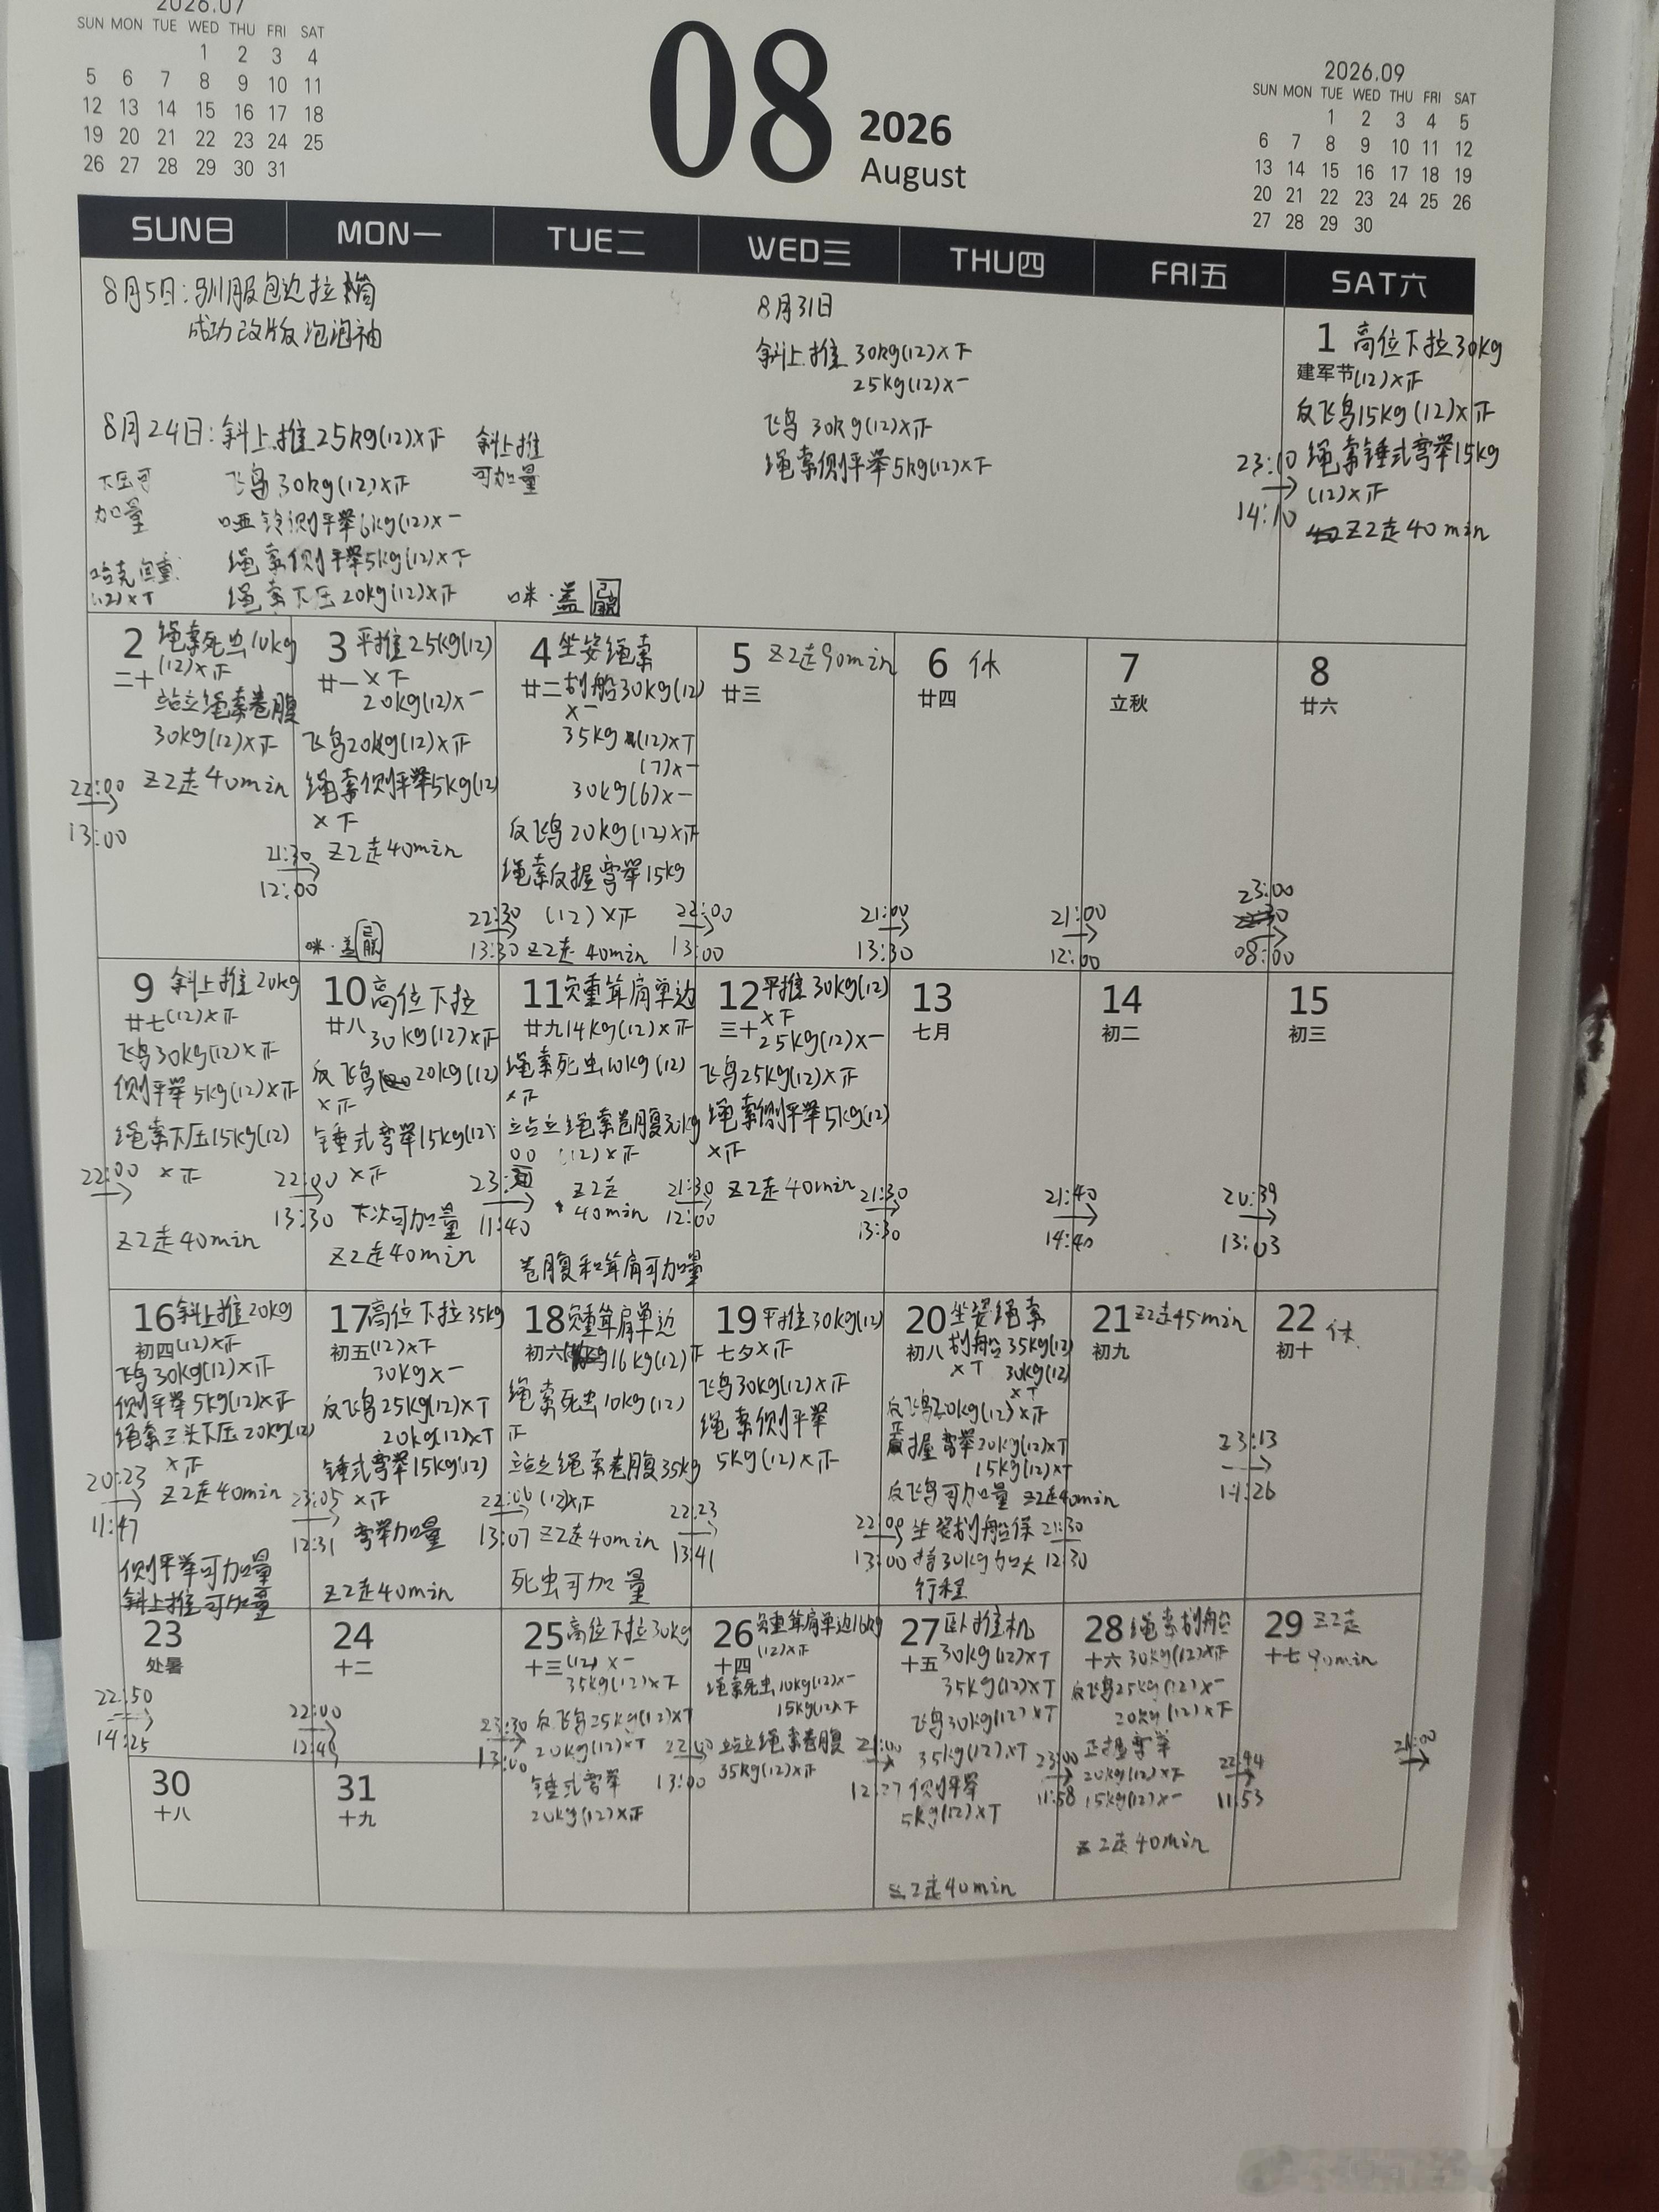 2026.07
SUN MON TUE WED THU FRI SAT
1 2 3 4
5 6 7 8 9 10 11
12 13 14 15 16 17 18
19 20 21 22 23 24 25
26 27 28 29 30 31
08
2026
August
2026.09
SUN MON TUE WED THU FRI SAT
1 2 3 4 5
6 7 8 9 10 11 12
13 14 15 16 17 18 19
20 21 22 23 24 25 26
27 28 29 30
SUN日 MON一 TUE二 WED三 THU四 FRI五 SAT六
8月5日:驯服包边拉筒
成功改版泡泡袖
8月24日:斜上推25kg(12)×正
飞鸟30kg(12)×正
哑铃侧平举6kg(12)×一
绳索侧平举5kg(12)×下
绳索下压20kg(12)×正
斜上推
可加量
下压可
加量
哈克自重
(12)×T
咪·盖
8月31日
斜上推 30kg(12)×下
25kg(12)×一
飞鸟 30kg(12)×正
绳索侧平举5kg(12)×下
1 高位下拉30kg
建军节(12)×正
反飞鸟15kg(12)×正
绳索锤式弯举15kg
(12)×正
Z2走40min
23:10
→
14:10
2 绳索死虫10kg
二十(12)×正
站立绳索卷腹
30kg(12)×正
Z2走40min
22:00
→
13:00
3 平推25kg(12)
廿一×下
20kg(12)×一
飞鸟20kg(12)×正
绳索侧平举5kg(12)
×下
Z2走40min
21:30
→
12:00
咪·盖
4 坐姿绳索
廿二划船30kg(12)
×一
35kg(12)×T
(7)×一
30kg(6)×一
反飞鸟20kg(12)×正
绳索反握弯举15kg
(12)×正
Z2走40min
22:30
→
13:30
5 Z2走90min
廿三
22:00
→
13:00
6 休
廿四
21:00
→
13:30
7
立秋
21:00
→
12:00
8
廿六
23:00
→
08:00
9 斜上推20kg
廿七(12)×正
飞鸟30kg(12)×正
侧平举5kg(12)×正
绳索下压15kg(12)
×正
22:00
→
Z2走40min
10 高位下拉
廿八30kg(12)×正
反飞鸟20kg(12)
×正
锤式弯举15kg(12)
×正
22:00
→
13:30
下次可加量
Z2走40min
11 负重耸肩单边
廿九14kg(12)×正
绳索死虫10kg(12)
×正
站立绳索卷腹30kg
(12)×正
23:00
→
11:40
Z2走
40min
卷腹和耸肩可加量
12 平推30kg(12)
三十×下
25kg(12)×一
飞鸟25kg(12)×正
绳索侧平举5kg(12)
×正
21:30
→
12:00
Z2走40min
13
七月
21:30
→
13:30
14
初二
21:40
→
14:40
15
初三
20:39
→
13:03
16 斜上推20kg
初四(12)×正
飞鸟30kg(12)×正
侧平举5kg(12)×正
绳索三头下压20kg(12)
×正
20:23
→
11:47
Z2走40min
侧平举可加量
斜上推可加量
17 高位下拉35kg
初五(12)×下
30kg×一
反飞鸟25kg(12)×T
20kg(12)×T
锤式弯举15kg(12)
×正
23:05
→
12:31
弯举加量
Z2走40min
18 负重耸肩单边
初六16kg(12)正
绳索死虫10kg(12)
正
站立绳索卷腹35kg
(12)×正
22:06
→
13:07
Z2走40min
死虫可加量
19 平推30kg(12)
七夕×正
飞鸟30kg(12)×正
绳索侧平举
5kg(12)×正
22:23
→
13:41
20 坐姿绳索
初八划船35kg(12)
×T 30kg(12)
×T
反飞鸟20kg(12)×正
正握弯举20kg(12)×T
15kg(12)×T
反飞鸟可加量 Z2走40min
22:09
→
13:00
坐姿划船保
持30kg加大
行程
21 Z2走45min
初九
21:30
→
12:30
22 休
初十
23:13
→
14:26
23
处暑
22:50
→
14:25
24
十二
22:00
→
25 高位下拉30kg
十三(12)×一
35kg(12)×下
反飞鸟25kg(12)×T
20kg(12)×T
锤式弯举
20kg(12)×正
23:30
→
13:00
26 负重耸肩单边16kg
十四(12)×正
绳索死虫10kg(12)×一
15kg(12)×下
站立绳索卷腹
35kg(12)×正
22:00
→
13:00
27 卧推机
十五30kg(12)×T
35kg(12)×T
飞鸟30kg(12)×T
35kg(12)×T
侧平举
5kg(12)×T
21:00
→
12:27
Z2走40min
28 绳索划船
十六30kg(12)×正
反飞鸟25kg(12)×一
20kg(12)×下
正握弯举
20kg(12)×下
15kg(12)×一
23:00
→
11:58
Z2走40min
29 Z2走
十七90min
22:44
→
11:53
→
30
十八
31
十九